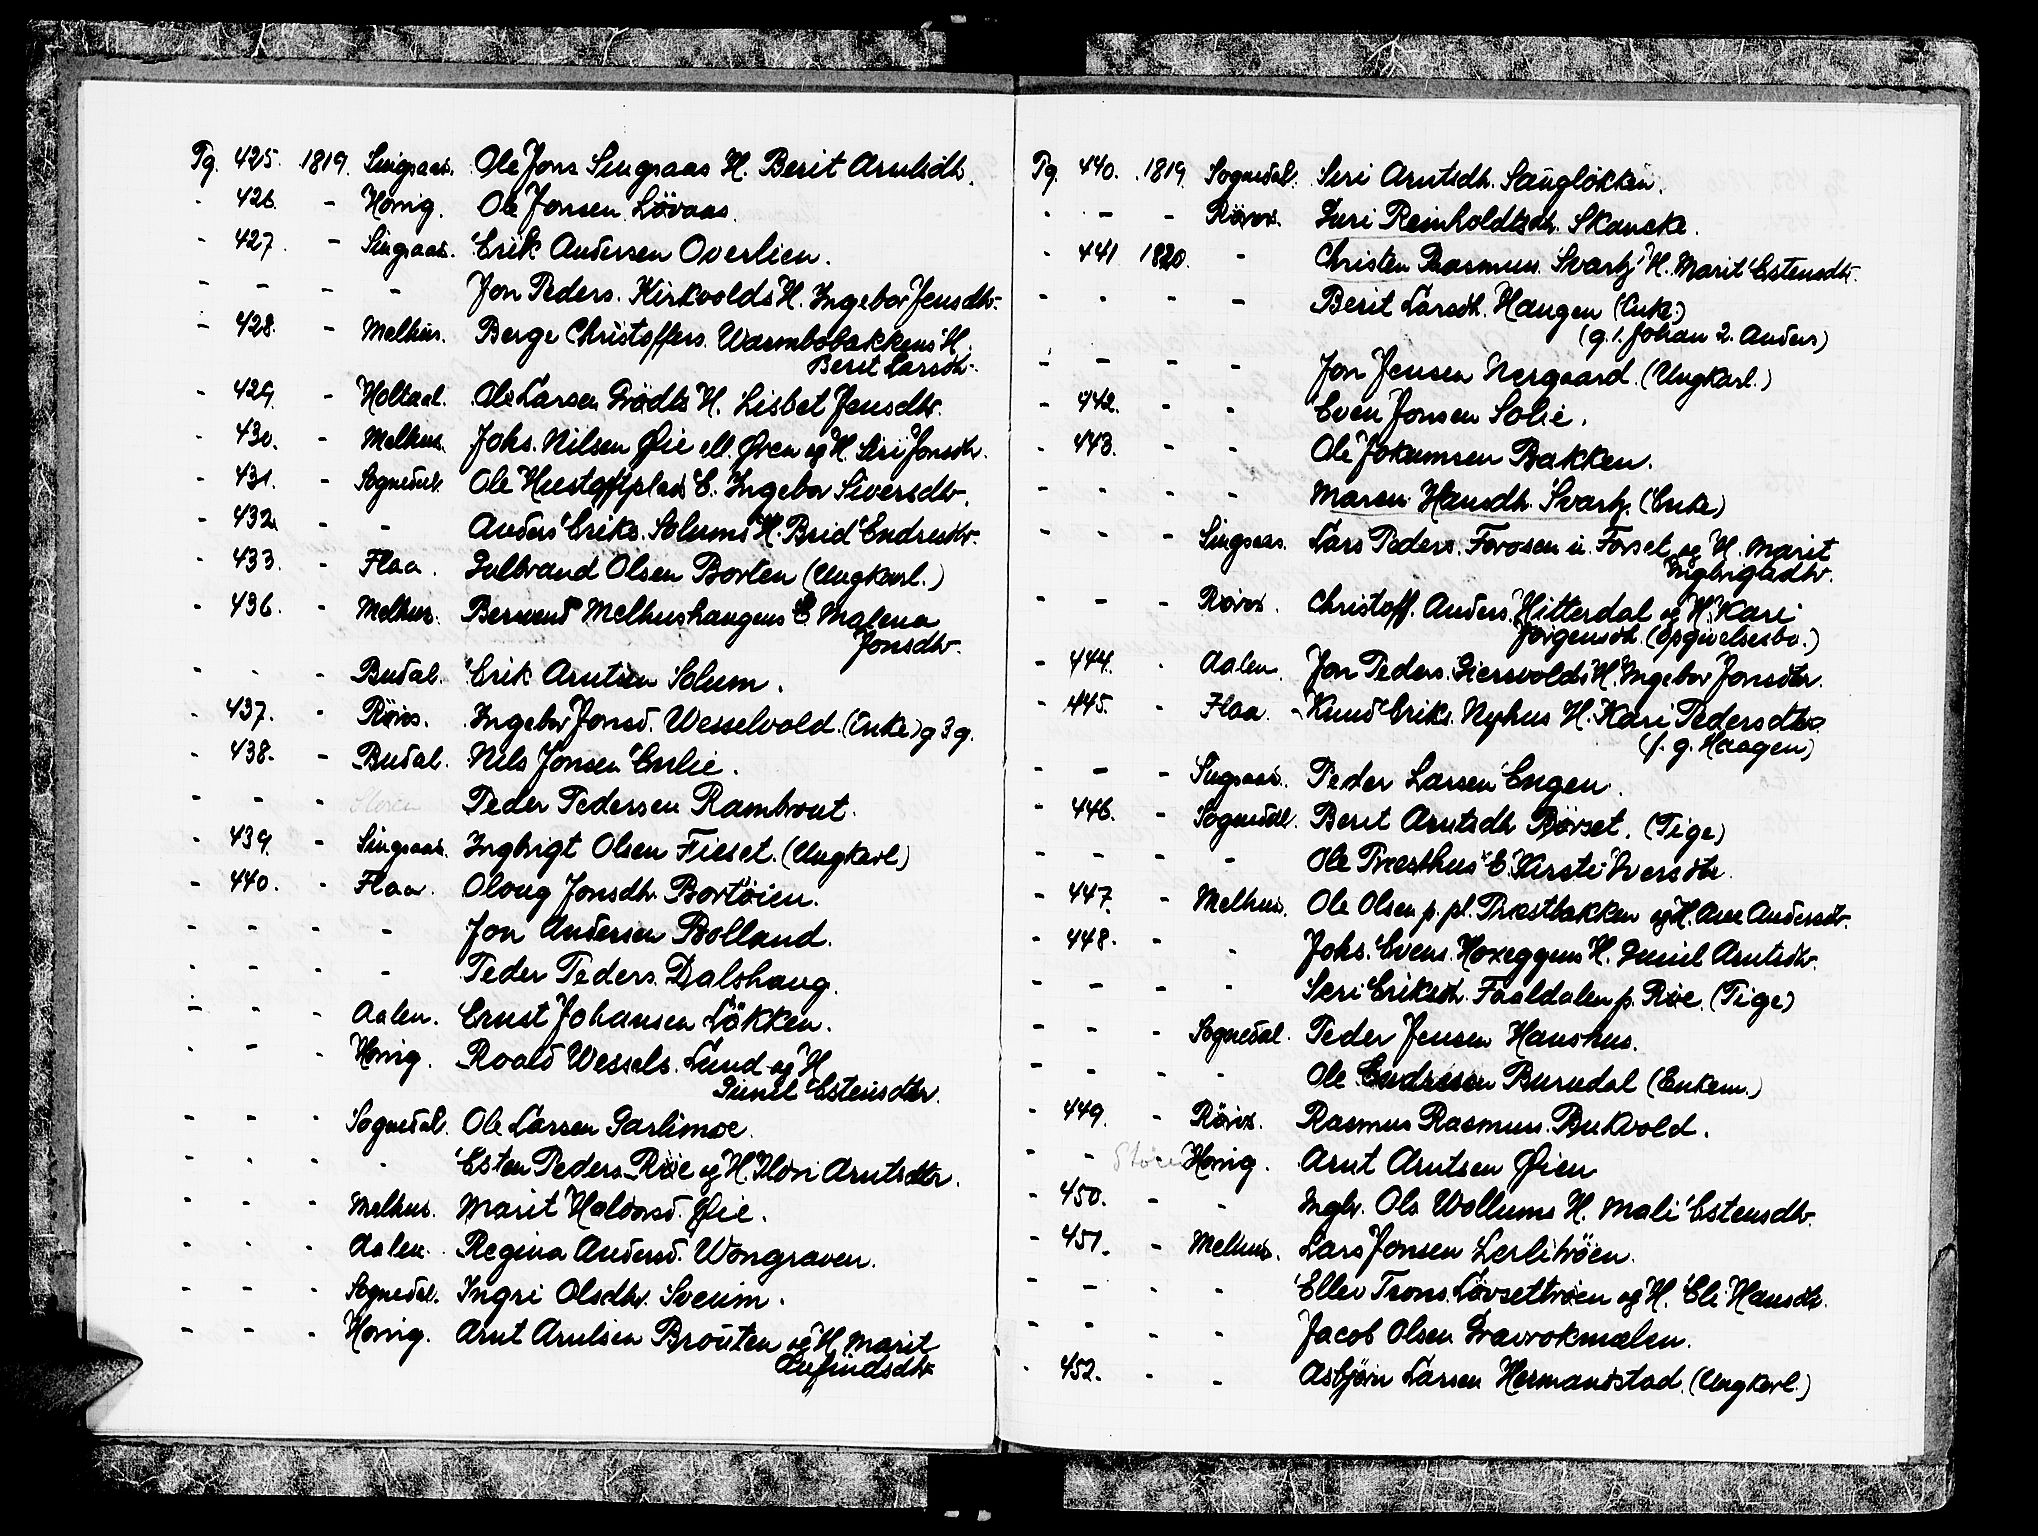 Pg. 425. 1819. Singsaas. Ole Jons Singsaas H. Berit Arntsdtr.
- 426. - Horrig. Ole Jonsen Lövaas.
- 427. - Singsaas. Erik Andersen Overlien.
- - - - Jon Peders. Kirkvolds H. Ingebor Jensdtr.
- 428. - Melhus. Berge Christoffers. Warmbobakkens H.
Berit Larsdtr.
- 429. - Holtaal. Ole Larsen Grödts H. Lisbet Jensdtr.
- 430. - Melhus. Johs. Nilsen Øie ell. Øren og H. Siri Jonsdtr.
- 431. - Sognedal. Ole Heestoftplads E. Ingebor Siversdtr.
- 432. - - Anders Eriks. Solums H. Brid Endresdtr.
- 433. - Flaa. Gulbrand Olsen Borten (Ungkarl.)
- 436. - Melhus. Bernend Melhushaugens E. Malena
Jonsdtr.
- - - Budal. Erik Arntsen Solum.
- 437. - Röros. Ingebor Jonsd. Wesselvold. (Enke) g 3 g.
- 438. - Budal. Nils Jonsen Enlie.
- - - Støren Peder Pedersen Rambrout.
- 439. - Singsaas. Ingbrigt Olsen Fieset. (Ungkarl)
- 440. - Flaa. Oloug Jonsdtr. Bortöien.
- - - - Jon Andersen Bolland.
- - - - Peder Peders. Dalshaug.
- - - Aalen. Ernst Johansen Lökken.
- - - Horrig. Roald Wessels. Lund og H
Gunel Estensdtr.
- - - Sognedal. Ole Larsen Garlimoe.
- - - - Esten Peders. Röe og H. Mari Arntsdtr.
- - - Melhus. Marit Haldorsd. Øie.
- - - Aalen. Regina Andersd. Wongraven.
- - - Sognedal. Ingri Olsdtr. Sveum.
- - - Horrig. Arnt Arntsen Brouten og H. Marit
Enfindsdtr
Pg. 440. 1819. Sognedal. Siri Arntsdtr. Saugløkken.
- - - Röros. Guri Reinholdtsdtr. Skancke.
- 441 1820. - Christen Rasmuss. Svartz' H. Marit Estensdtr.
- - - - Berit Larsdt. Haugen (Enke)
(g. 1. Johan 2. Anders)
- - - - Jon Jensen Nergaard. (Ungkarl.)
- 442. - - Even Jonsen Solie.
- 443. - - Ole Jokumsen Bakken.
- - - - Maren Hansdtr. Svartz. (Enke)
- - - Singsaas. Lars Peders. Forosen u. Forset og H. Marit
Ingbrigtsdtr.
- - - Röros. Christoff. Anders. Hitterdal og H. Kari
Jörgensdt. (Opgivelsesbo.)
- 444. - Aalen. Jon Peders. Giersvolds H. Ingebor Jonsdtr.
- 445. - Flaa. Knud Eriks. Nyhus H. Kari Pedersdtr.
(f. g. Haagen)
- - - Singsaas. Peder Larsen Engen.
- 446. - Sognedal. Berit Arntsdtr Börset. (Pige)
- - - - Ole Præsthus' E. Kirsti Iversdtr.
- 447. - Melhus. Ole Olsen p. pl. Præstbakken og H. Ane Andersdtr.
- 448. - - Johs. Evens. Hoxeggens H. Gunil Arntsdtr.
- - - - Siri Eriksdtr. Faaldalen p. Röe. (Pige)
- - - Sognedal. Peder Jensen Haushus.
- - - - Ole Endresen Burudal (Enkem.)
- 449. - Röros. Rasmus Rasmuss. Bukvold.
- - Støren Horrig. Arnt Arntsen Øien
- 450. - - Ingbr. Ols Wollums H. Mali Estensdtr.
- 451. - Melhus. Lars Jonsen Lerlitröen.
- - - - Ellev Trons. Lövsettröen og H. Eli Hansdtr.
- - - - Jacob Olsen Gravrokmælen.
- 452. - - Asbjörn Larsen Hermanstad. (Ungkarl.)